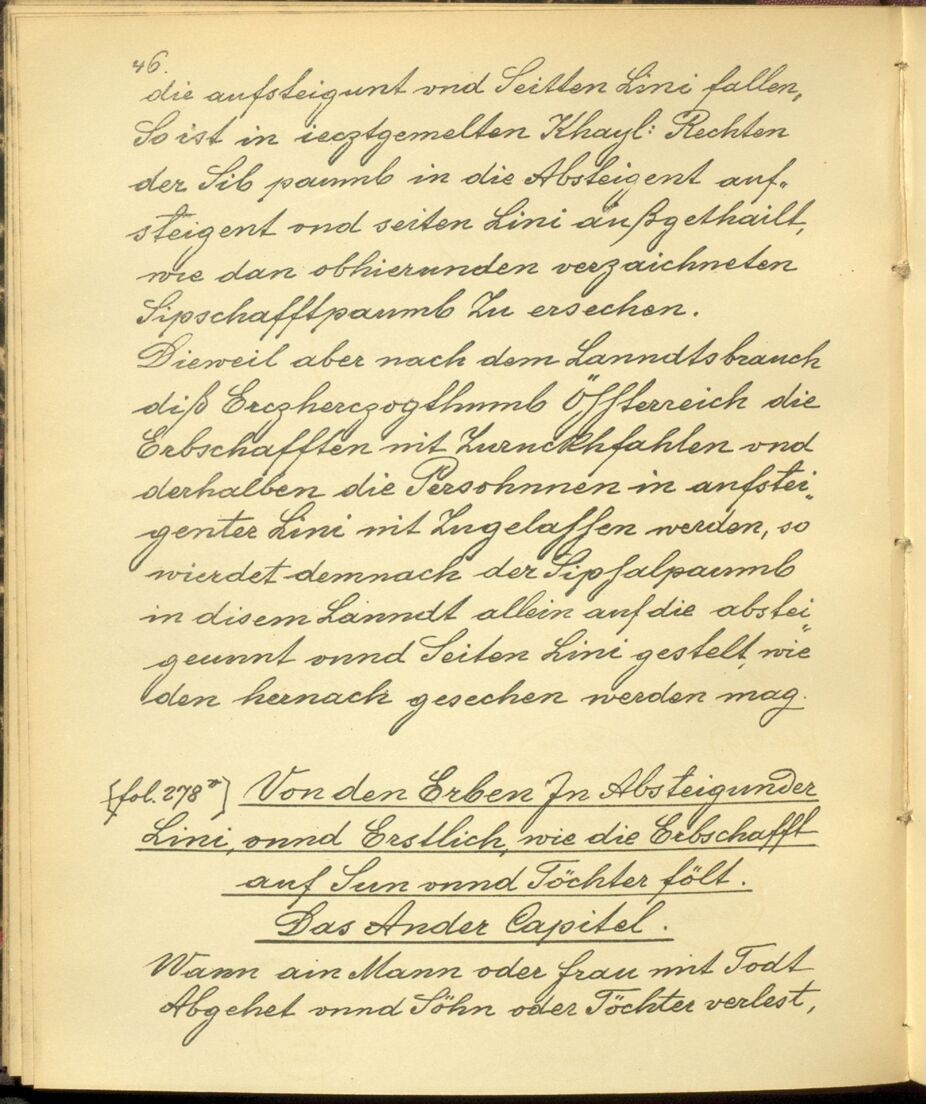 46.
die aufsteigunt vnd Seitten Lini fallen,
So ist in iecztgemelten Khayl: Rechten
der Sib paumb in die Absteigent auf-
steigent vnd seiten Lini außgethailt,
wie dan obhierunden verzaichneten
Sipschafftpaumb Zu ersechen.
Dieweil aber nach dem Lanndtsbrauch
diß Erczherczogthumb Össterreich die
Erbschafften nit Zuruckhfahlen vnd
derhalben die Persohnnen in aufstei-
genter Lini nit Zugelassen werden, so
wierdet demnach der Sipsalpaumb
in disem Lanndt allein auf die abstei-
geunnt vnnd Seiten Lini gestelt, wie
den hernach gesechen werden mag.
[fol. 278r] Von den Erben In Absteigunder
Lini, vnnd Erstlich, wie die Erbschafft
auf Sun vnnd Töchter fölt.
Das Ander Capitel.
Wann ain Mann oder frau mit Todt
Abgehet vnnd Söhn oder Töchter verlest,